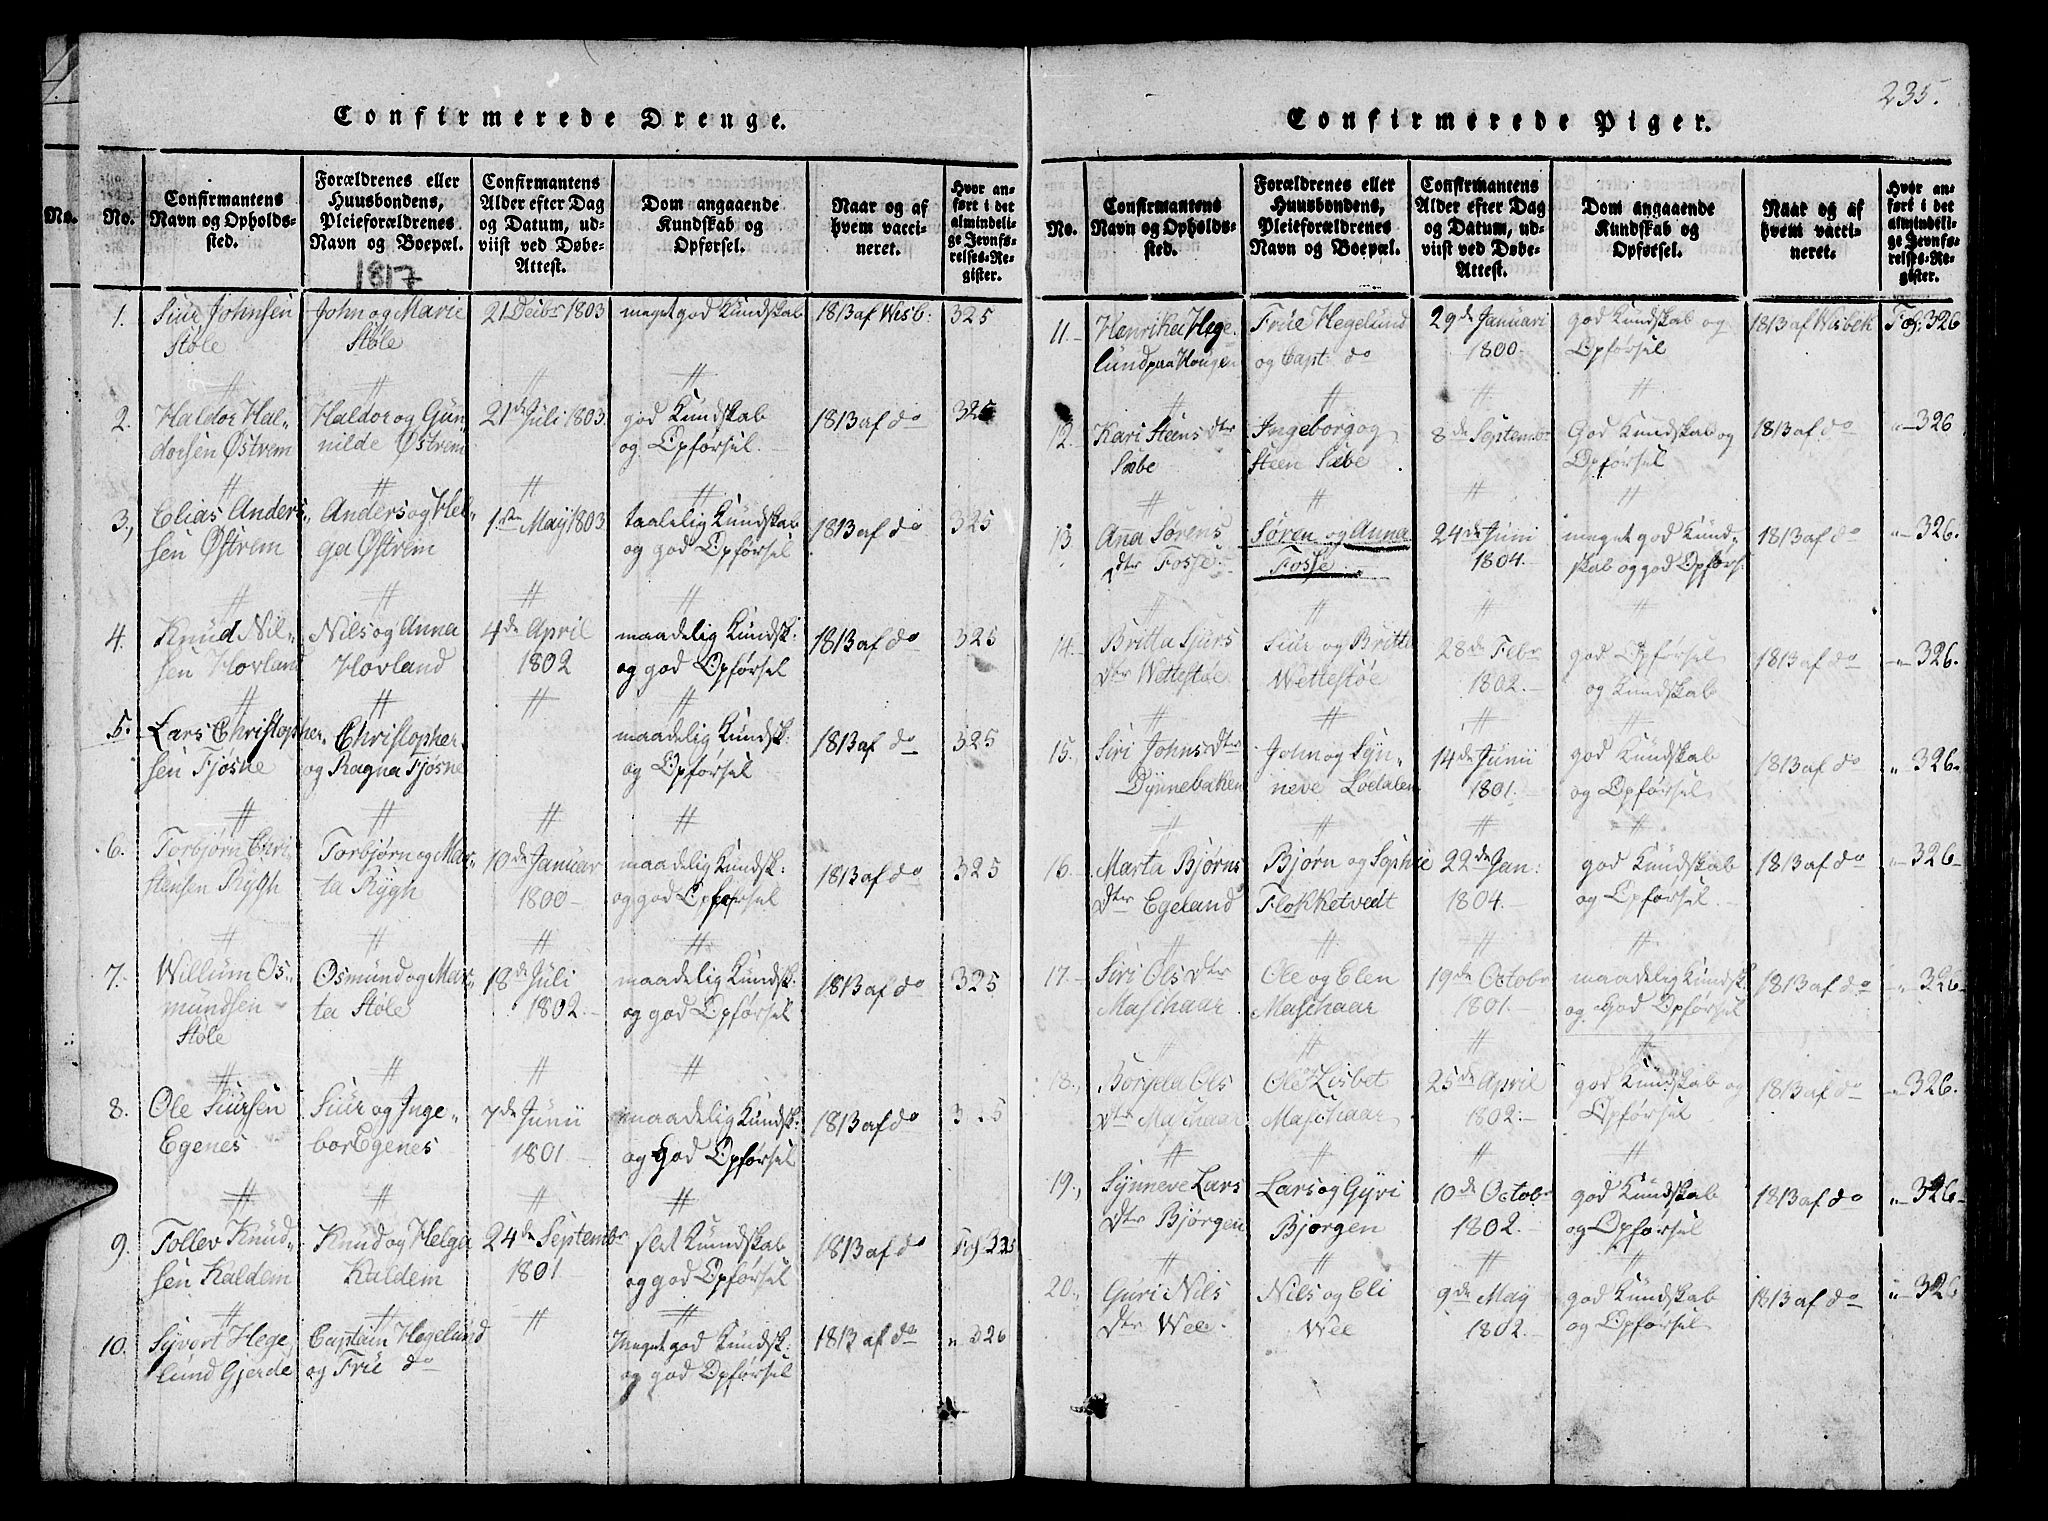 235.
Confirmerede Drenge.
No.
No.
Confirmantens Navn og Opholds-sted.
Forældrenes eller Huusbondens, Pleieforældrenes Navn og Boepæl.
Confirmantens Alder efter Dag og Datum, ud-viist ved Døbe-Attest.
Dom angaaende Kundskab og Opførsel.
Naar og af hvem vacci-neret.
Hvor an-ført i det almindeli-ge Jevnfø-relses-Re-gister.
1817
1. Siur Johnsen John og Marie 21 Decbr 1803 meget god Kundskab 1813 af Wisb: 325
Støle Støle
2. Haldor Hal- Haldor og Gun- 21de Juli 1803. god Kundskab 1813 af do 325
dorsen Østrem nilde Østrem og Opførsel.
3., Elias Anders- Anders og Hel- 1ste May 1803 taalelig Kundskab 1813 af do 325
sen Østrem ga Østrem og god Opførsel
4. Knud Nil- Nils og Anna 4de April maadelig Kundsk: 1813 af do 325
sen Hovland Hovland 1802 og god Opførsel
5. Lars Christopher- Christopher maadelig Kundsk: 1813 af do 325
sen Fjøsne og Ragna Fjøsne og Opførsel
6. Torbjørn Chri- Torbjørn og Mar- 10de Januar maadelig Kundsk: 1813 af do 325
stensen Rygh ta Rygh 1800 og god Opførsel
7. Willum Os- Osmund og Mar- 18de Juli maadelig Kundsk: 1813 af do 325
mundsen ta Støle 1802. og god Opførsel
Støle
8. Ole Siursen Siur og Inge- 7de Junii maadelig Kundsk: 1813 af do 325
Egenes bor Egenes 1801 og god Opførsel
9. Tollev Knud- Knud og Helga 24de Septembr slet Kundskab 1813 af do Fol 325
sen Kaldem Kaldem 1801 og god Opførsel
10. Syvert Hege- Captain Hegelund meget god Kundsk: 1813 af do " 326
lund Gjerde og Frue do og god Opførsel
Confirmerede Piger.
No.
Confirmantens Navn og Opholds-sted.
Forældrenes eller Huusbondens, Pleieforældrenes Navn og Boepæl.
Confirmantens Alder efter Dag og Datum, ud-viist ved Døbe-Attest.
Dom angaaende Kundskab og Opførsel.
Naar og af hvem vacci-neret.
Hvor an-ført i det almindeli-ge Jevnfø-relses-Re-gister.
11. Henrika Hege- Frue Hegelund 29de Januari god Kundskab og 1813 af Wisbek Fol: 326
lund paa Hougen og Capt: do 1800. Opførsel
12. Kari Steens dtr Ingeborg og 8de Septembr God Kundskab og 1813 af do 326
Sæbe Steen Sæbe Opførsel
13 Ana Sørens Søren og Anna 24de Juni meget god Kund- 1813 af do 326.
dtr Fosse. Fosse. 1804. skab og god Opførs.
14. Britta Sjurs Siur og Britte 28de Febr god Opførsel 1813 af do 326.
dtr Wettestøe Wettestøe 1802. og Kundskab
15. Siri Johns dtr John og Syn- 14de Junii god Kundskab 1813 af do 326.
Dynnebaken neve Lodalen 1801. og Opførsel
16. Marta Bjørns Bjørn og Sophie 22de Jan: god Kundskab 1813 af do 326
dtr Egeland Flokketvedt 1804. og Opførsel
17. Siri Ols dtr Ole og Elen 19de Octobr maadelig Kundsk 1813 af do 326
Maschaar Maschaar 1801. og God Opførsel
18., Børgela Ols Ole Lisbet 25de April god Kundskab og 1813 af do 326.
dtr Maschaar Maschaar 1802. Opførsel
19., Synneve Lars Lars og Gyri 10de Octobr god Kundskab 1813 af do 326
dtr Bjørgen Bjørgen 1802. og Opførsel
20., Guri Nils Nils og Eli 9de May god Kundskab 1813 af do 326
dtr Wee. Wee 1802. og Opførsel